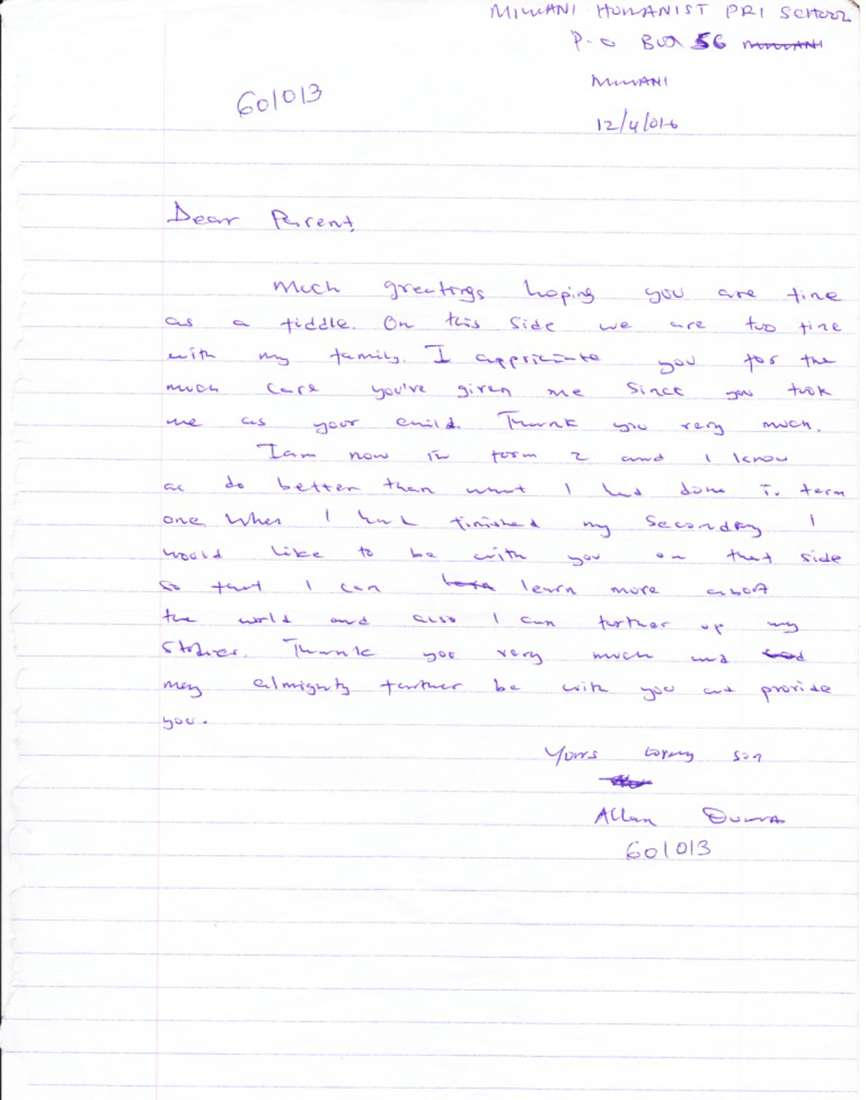 MIWANI HUMANIST PRI SCHOOL
P.O BOX 56
MIWANI
601013
12/4/016
Dear Parent,
Much greetings hoping you are fine
as a fiddle. On this side we are too fine
with my family. I appriciate you for the
much care you've given me since you took
me as your child. Thank you very much.
I am now in form 2 and I know
do better than what I had done in term
one. When I had finished my Secondary I
would like to be with you on that side
so that I can learn more about
the world and also I can further up my
Studies. Thank you very much and
may almighty further be with you and provide
you.
Yours loving son
Allan
601013